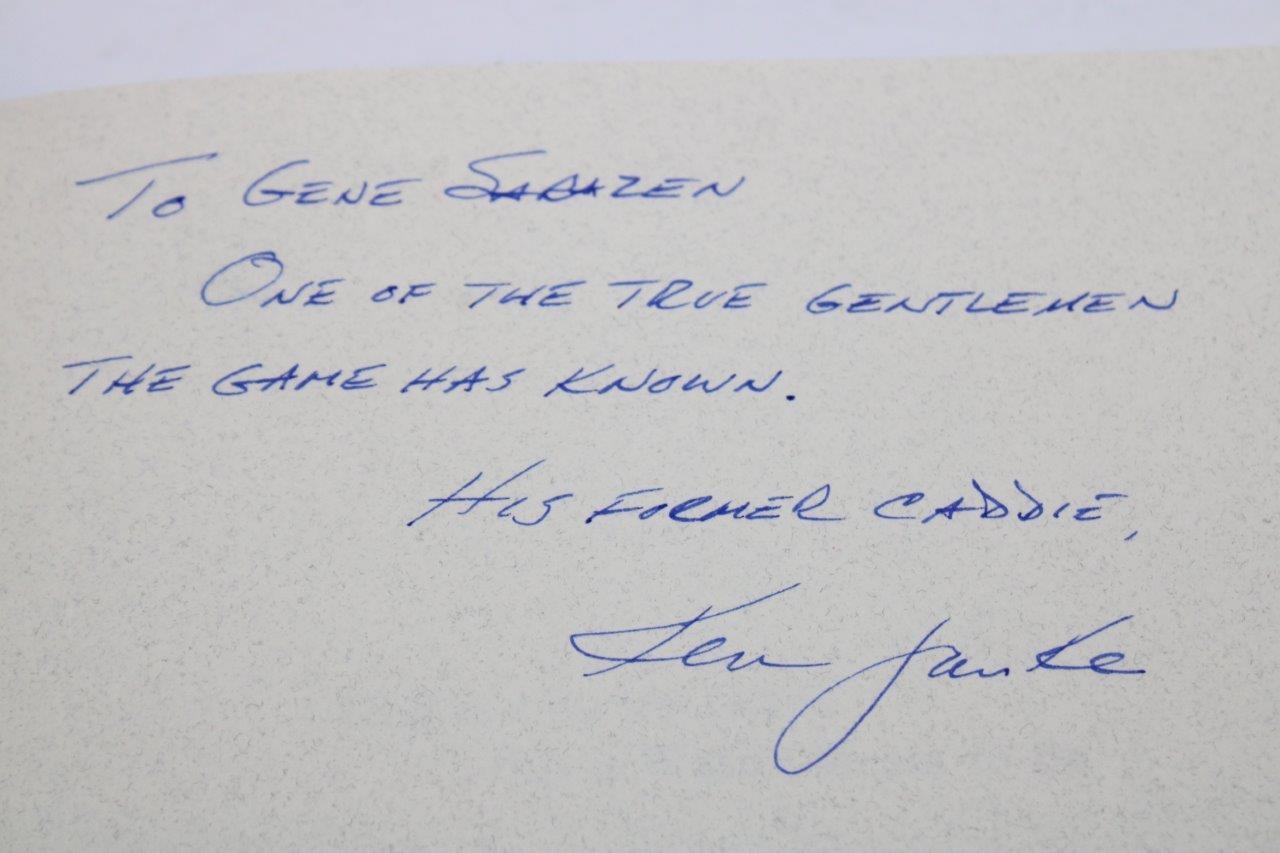 To GENE SARAZEN
ONE OF THE TRUE GENTLEMEN
THE GAME HAS KNOWN.
HIS FORMER CADDIE,
Ken Janke